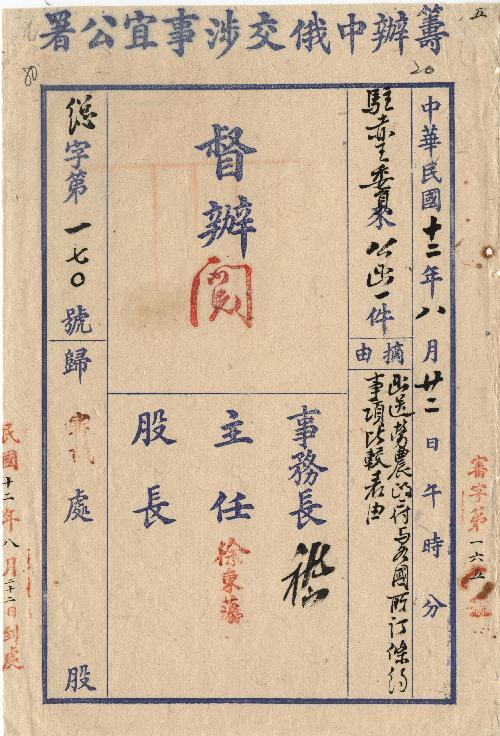 五
20
80
籌辦中俄交涉事宜公署
中華民國十二年八月廿二日午時分
駐赤王委員來公函一件
摘由
函送勞農政府與各國所訂條約
事項比較表由
督辦
閱
事務長
主任 徐東藩
股長
總字第一七〇號歸 處 股
審字第一六五號
民國十二年八月二十二日到處